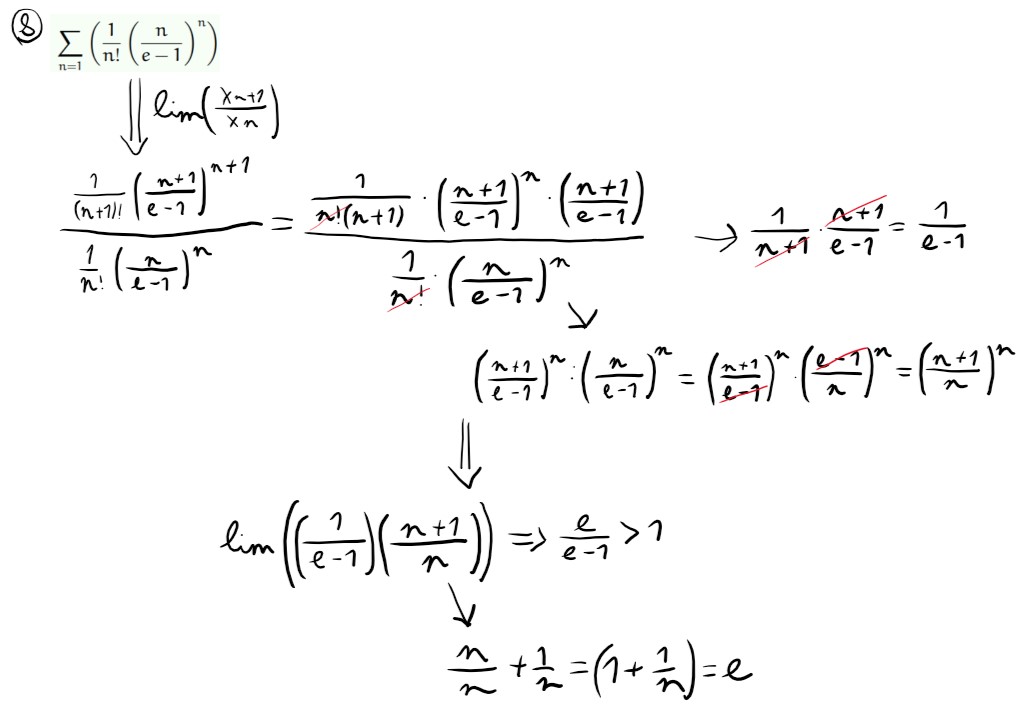 ⑧ \sum_{n=1} \left( \frac{1}{n!} \left( \frac{n}{e-1} \right)^n \right)
⇓ lim\left( \frac{x_{n+1}}{x_n} \right)
\frac{\frac{1}{(n+1)!} \left( \frac{n+1}{e-1} \right)^{n+1}}{\frac{1}{n!} \left( \frac{n}{e-1} \right)^n} = \frac{\frac{1}{n!(n+1)} \cdot \left( \frac{n+1}{e-1} \right)^n \cdot \left( \frac{n+1}{e-1} \right)}{\frac{1}{n!} \cdot \left( \frac{n}{e-1} \right)^n} → \frac{1}{n+1} \cdot \frac{n+1}{e-1} = \frac{1}{e-1}
↘
\left( \frac{n+1}{e-1} \right)^n : \left( \frac{n}{e-1} \right)^n = \left( \frac{n+1}{e-1} \right)^n \cdot \left( \frac{e-1}{n} \right)^n = \left( \frac{n+1}{n} \right)^n
⇓
lim\left( \left( \frac{1}{e-1} \right) \left( \frac{n+1}{n} \right) \right) => \frac{e}{e-1} > 1
↘
\frac{n}{n} + \frac{1}{n} = \left( 1 + \frac{1}{n} \right) = e